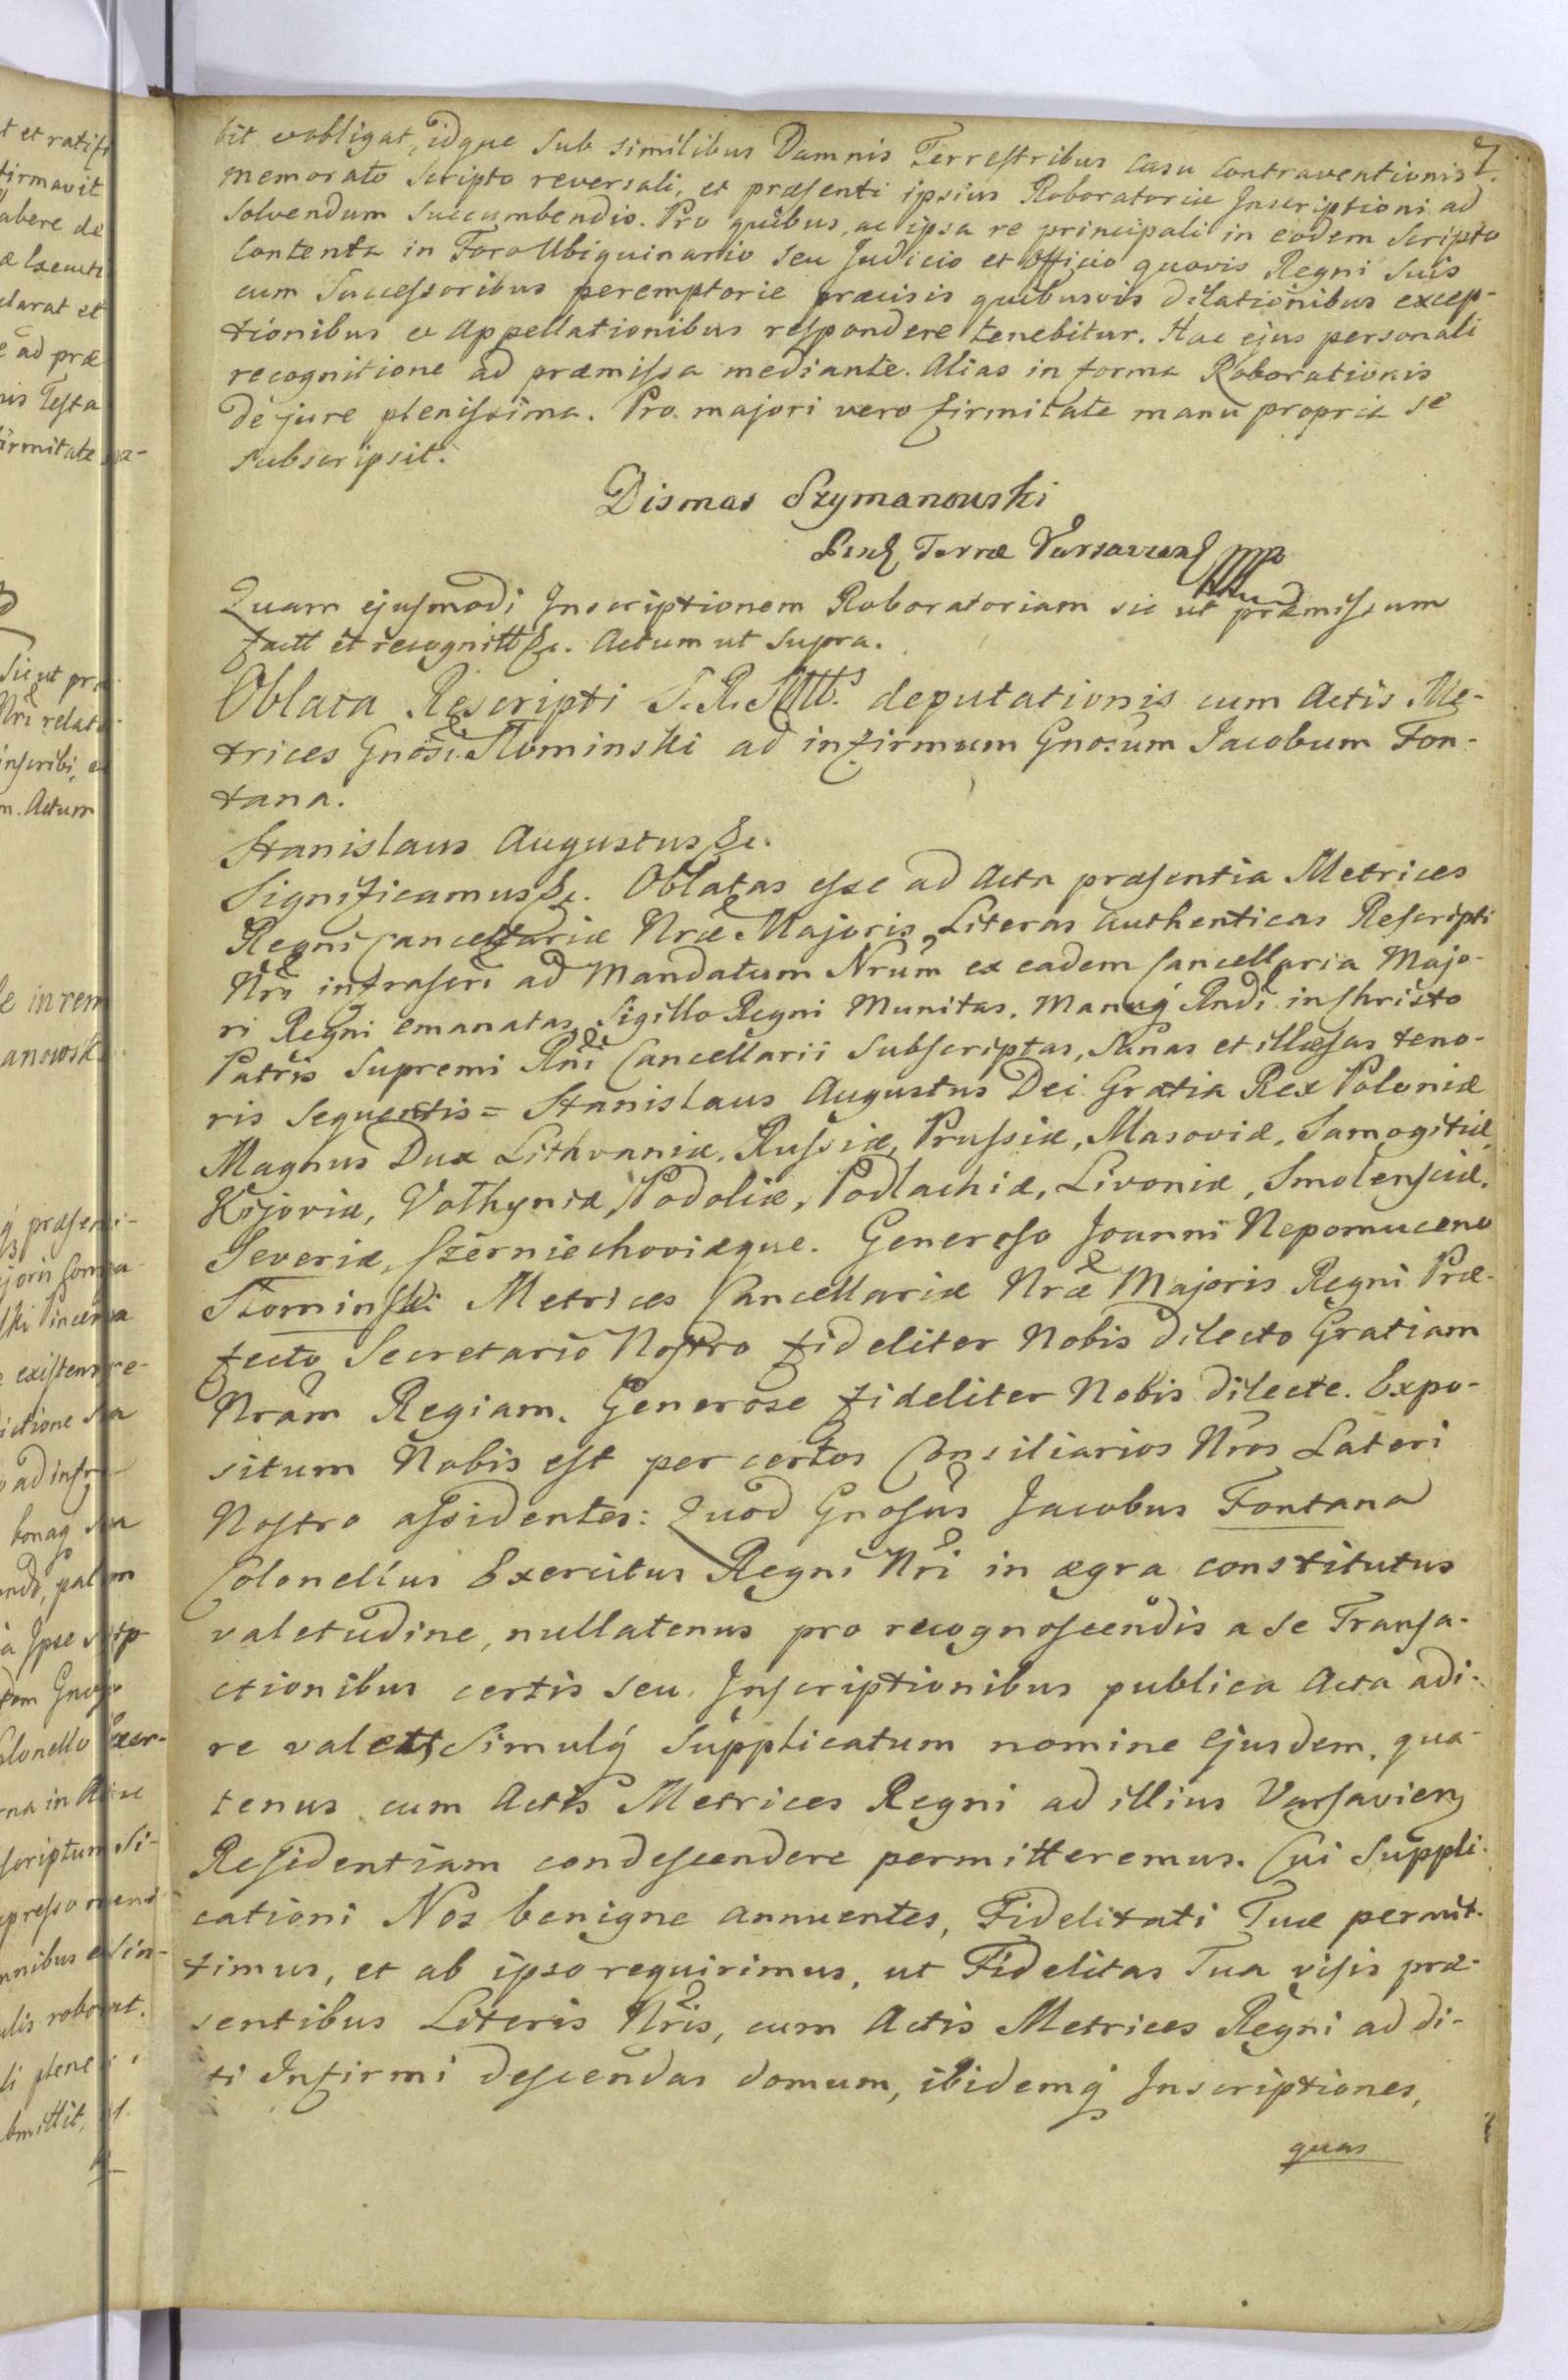 7.
bit et obligat, idque sub similibus Damnis Terrestribus casu contraventionis
memorato Scripto reversali, et præsenti ipsius Roboratoriæ Inscriptioni ad
solvendum succumbendis. Pro quibus, ac ipsa re principali in eodem Scripto
contenta in Foro Ubiquinario seu Judicio et Officio quovis Regni suis
cum Successoribus peremptorie præcisis quibusvis dilationibus excep-
tionibus et Appellationibus respondere tenebitur. Hac ejus personali
recognitione ad præmissa mediante. Alias in forma Roborationis
de jure plenissima. Pro majori vero firmitate manu propria se
subscripsit.
Dismas Szymanowski
Terræ Varsavien mp
Quam ejusmodi Inscriptionem Roboratoriam sic ut præmissum
facit et recognitt &c. Actum ut supra.
Oblata Rescripti S. R. Mttis deputationis cum Actis Me-
trices Gnosi Słominski ad infirmum Gnosum Jacobum Fon-
tana.
Stanislaus Augustus &c.
Significamus &c. Oblatas esse ad Acta præsentia Metrices
Regni Cancellariæ Nræ Majoris, Literas authenticas Rescripti
Nri infrascri ad Mandatum Nrum ex eadem Cancellaria Majo-
ri Regni emanatas, Sigillo Regni Munitas, Manuq Rndi in Christo
Patris Supremi Rni Cancellarii Subscriptas, Sanas et illæsas teno-
ris sequentis = Stanislaus Augustus Dei Gratia Rex Poloniæ
Magnus Dux Lithvaniæ, Russiæ, Prussiæ, Masoviæ, Samogitiæ,
Kijoviæ, Volhyniæ, Podoliæ, Podlachiæ, Livoniæ, Smolensciæ,
Severiæ, Czerniechoviæque. Generoso Joanni Nepomuceno
Słominski Metrices Cancellariæ Nræ Majoris Regni Præ-
fecto Secretario Nostro fideliter Nobis dilecto Gratiam
Nram Regiam. Generose fideliter Nobis dilecte. Expo-
situm Nobis est per certos Consiliarios Nros Lateri
Nostro assidentes: Quod Gnosus Jacobus Fontana
Colonellus Exercitus Regni Nri in ægra constitutus
valetudine, nullatenus pro recognoscendis a se Transa-
ctionibus certis seu Inscriptionibus publica Acta adi-
re valet, Simulq Supplicatum nomine ejusdem, qua-
tenus cum Actis Metrices Regni ad illius Varsavien
Residentiam condescendere permitteremus. Cui Suppli-
cationi Nos benigne annuentes, Fidelitati Tuæ permit-
timus, et ab ipso requirimus, ut Fidelitas Tua visis præ-
sentibus Literis Nris, cum Actis Metrices Regni ad di-
ti Infirmi descendas domum, ibidemq Inscriptiones,
quas